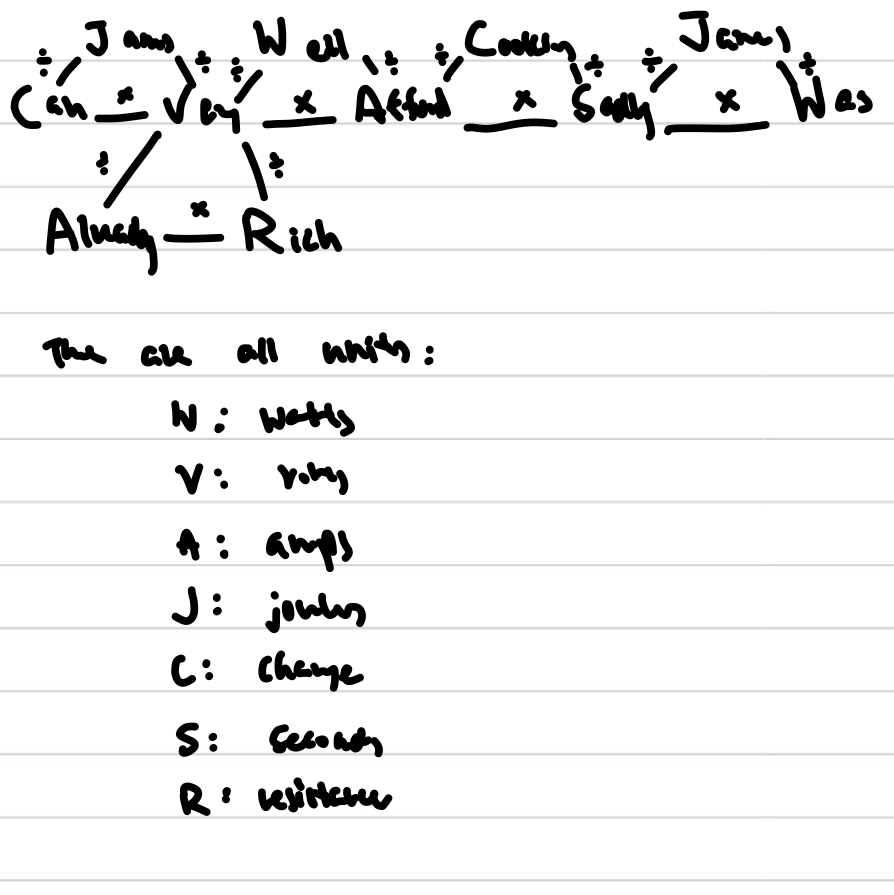 ÷ James ÷ ÷ Well ÷ ÷ Cookies ÷ ÷ James ÷
Can × Very × Afford × Sadly × Was
÷ ÷
Already × Rich
These are all units:
W: watts
V: volts
A: amps
J: joules
C: charge
S: seconds
R: resistance